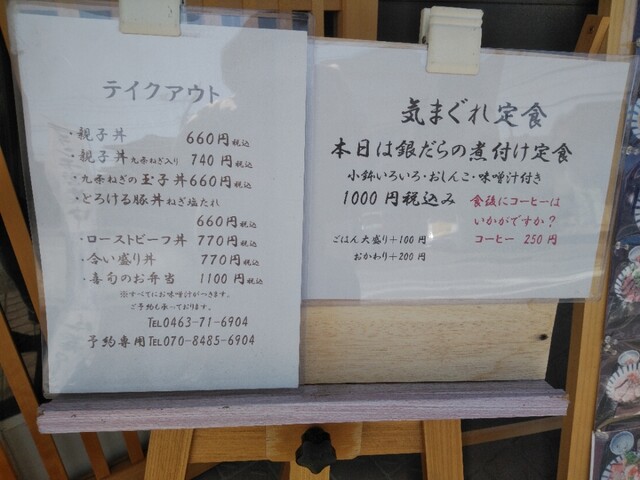 テイクアウト
・親子丼 660円税込
・親子丼九条ねぎ入り 740円税込
・九条ねぎの玉子丼660円税込
・とろける豚丼ねぎ塩だれ
660円税込
・ローストビーフ丼 770円税込
・合い盛り丼 770円税込
・喜旬のお弁当 1100円税込
※すべてにお味噌汁がつきます。
ご予約も承っております。
TEL0463-71-6904
予約専用TEL070-8485-6904
気まぐれ定食
本日は銀だらの煮付け定食
小鉢いろいろ・おしんこ・味噌汁付き
1000円税込み
食後にコーヒーは
いかがですか?
コーヒー 250円
ごはん 大盛り+100円
おかわり+200円